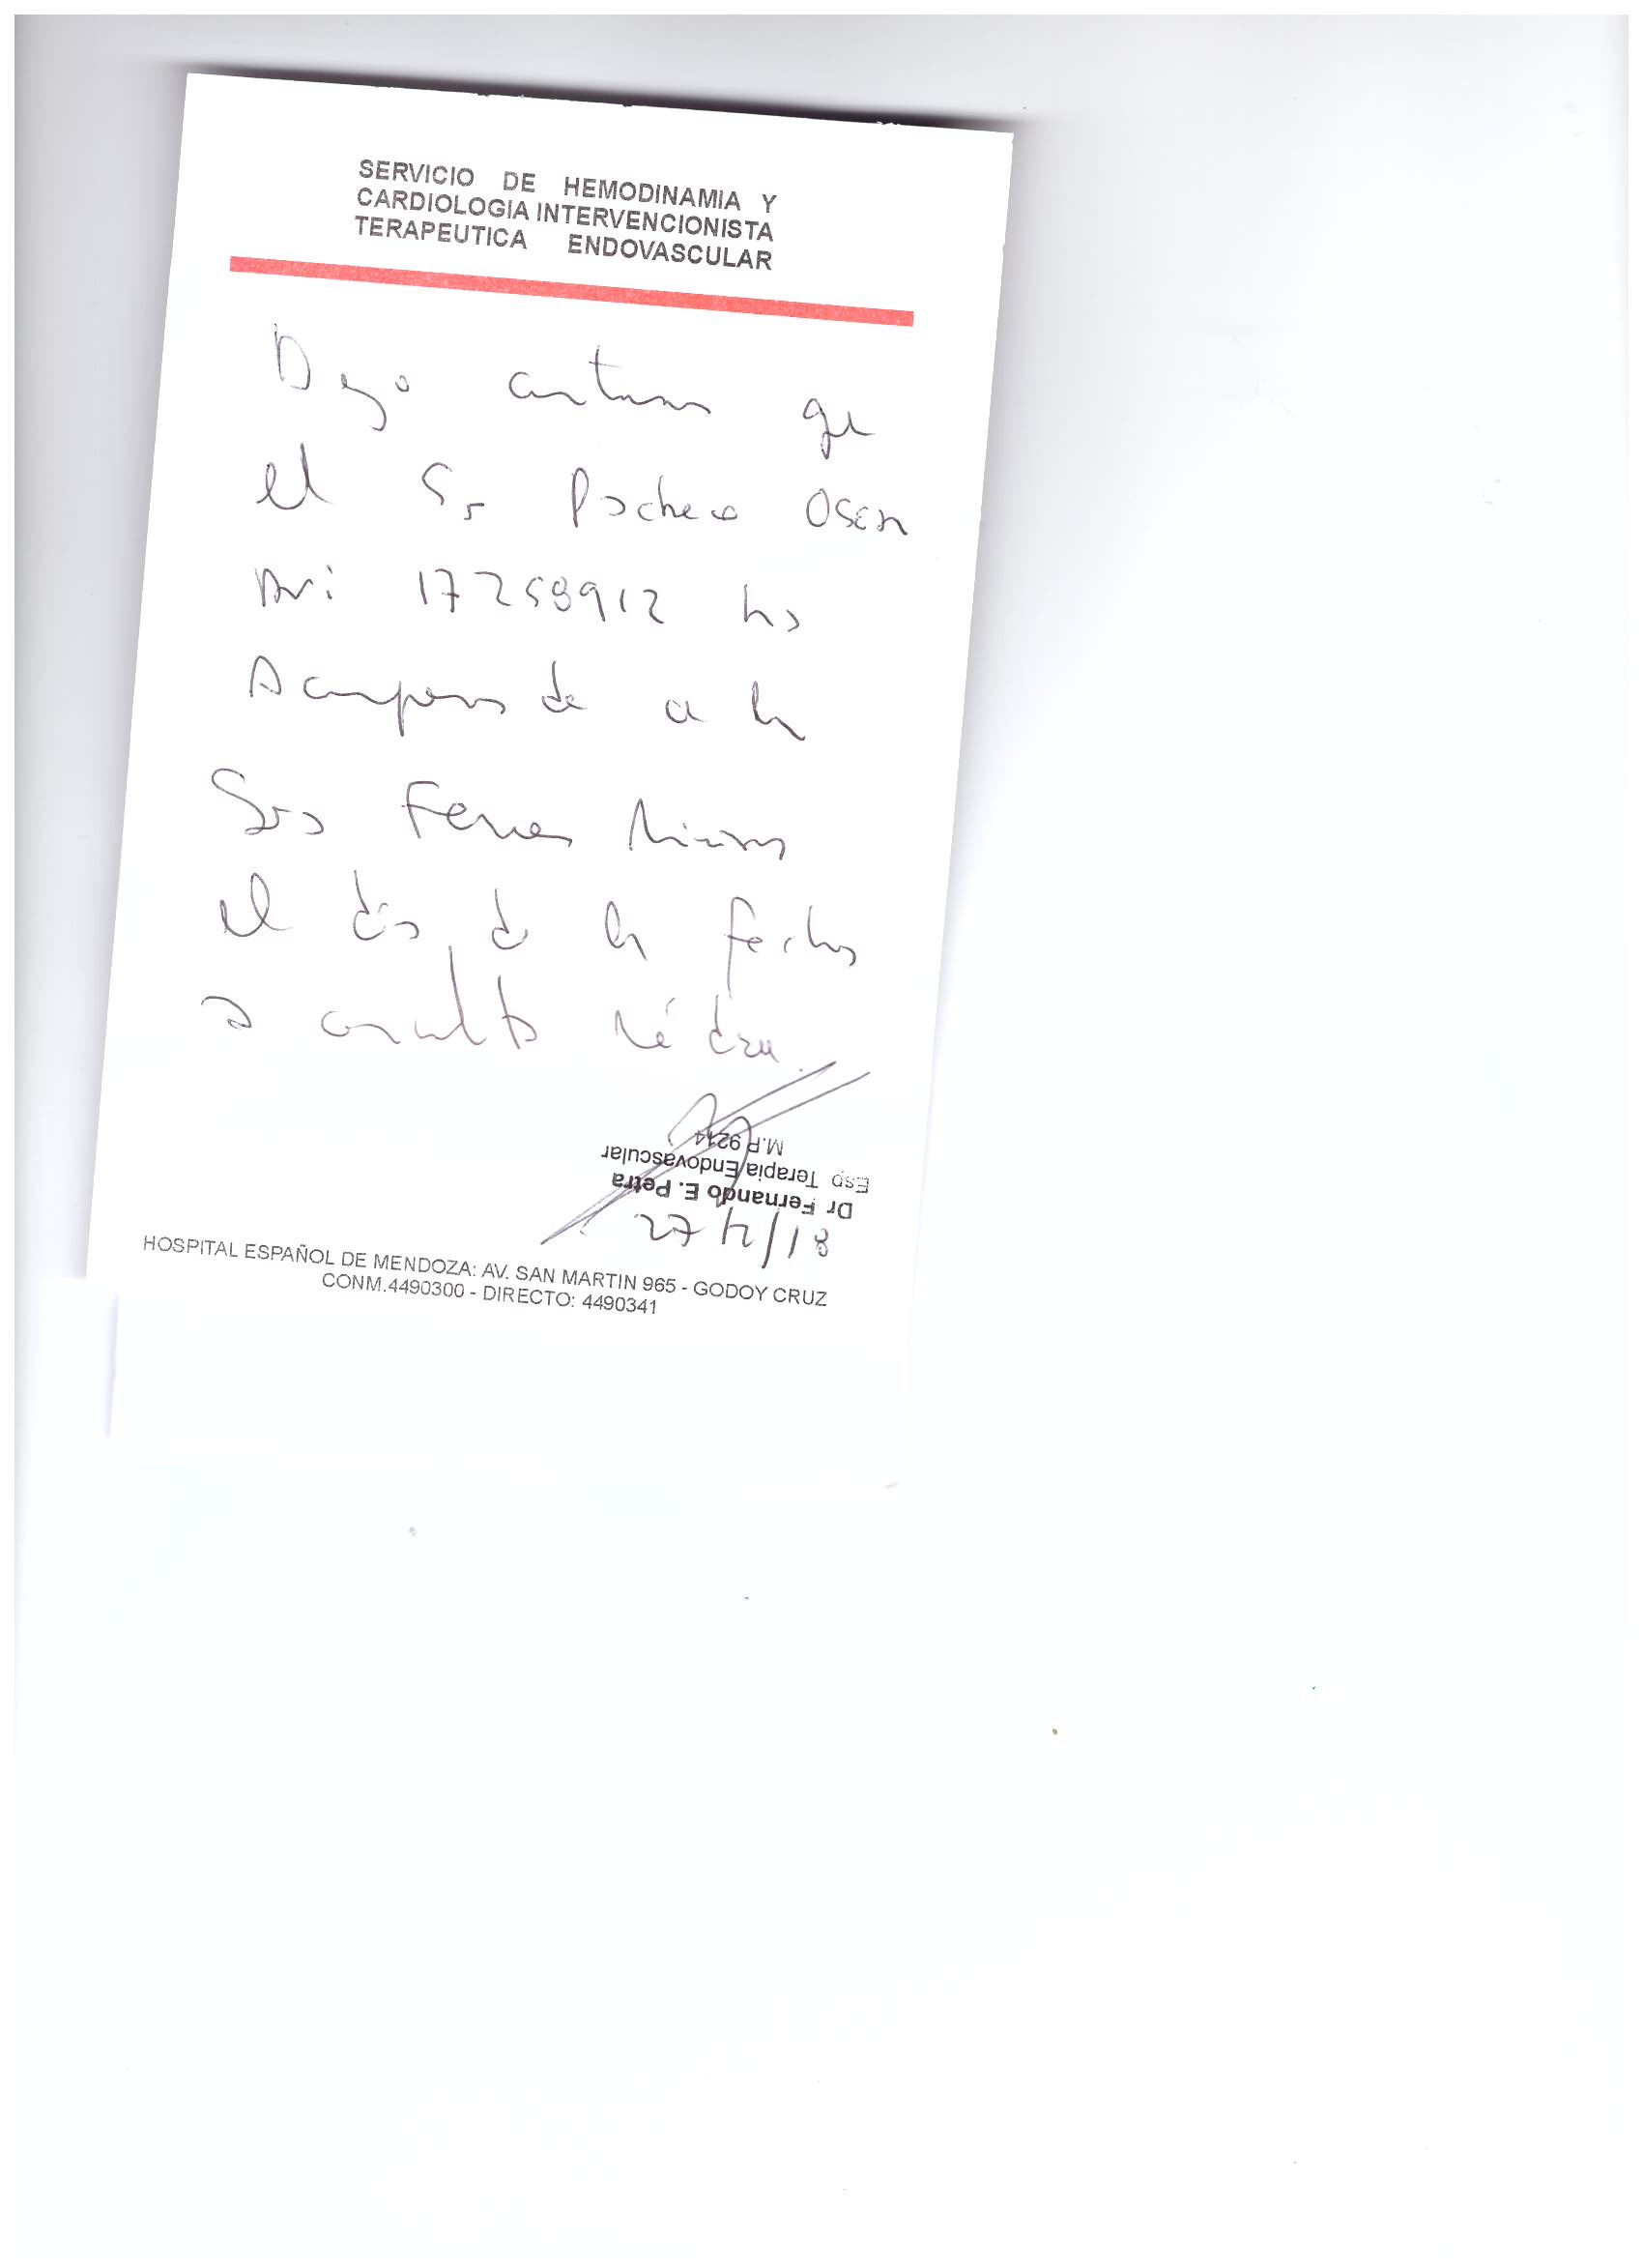 SERVICIO DE HEMODINAMIA Y
CARDIOLOGIA INTERVENCIONISTA
TERAPEUTICA ENDOVASCULAR
Dejo constancia que
el Sr Pacheco Oscar
DNI 17258912 ha
Acompañado a la
Sra Ferrer
el día de la fecha
a consulta médica.
M.P. 9214
Esp Terapia Endovascular
Dr Fernando E. Petra
27/12/18
HOSPITAL ESPAÑOL DE MENDOZA: AV. SAN MARTIN 965 - GODOY CRUZ
CONM.4490300 - DIRECTO: 4490341